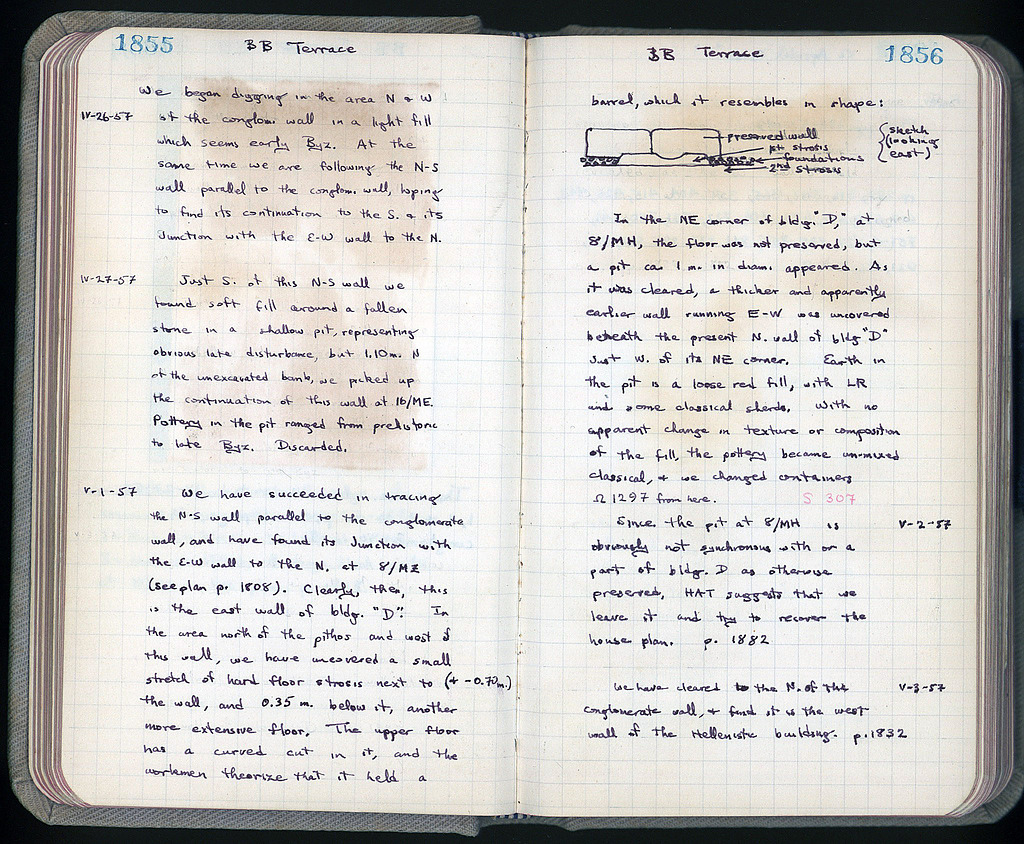 1855
BB Terrace
We began digging in the area N & W
IV-26-57
of the conglom. wall in a light fill
which seems early Byz. At the
same time we are following the N-S
wall parallel to the conglom. wall, hoping
to find its continuation to the S. & its
junction with the E-W wall to the N.
IV-27-57
Just S. of this N-S wall we
found soft fill around a fallen
stone in a shallow pit, representing
obvious late disturbance, but 1.10 m. N
of the unexcavated bank, we picked up
the continuation of this wall at 16/ME.
Pottery in the pit ranged from prehistoric
to late Byz. Discarded.
V-1-57
We have succeeded in tracing
the N-S wall parallel to the conglomerate
wall, and have found its junction with
the E-W wall to the N. at 8/ME
(see plan p. 1808). Clearly, then, this
is the east wall of bldg. "D". In
the area north of the pithos and west of
this wall, we have uncovered a small
stretch of hard floor strosis next to (+ -0.70 m.)
the wall, and 0.35 m. below it, another
more extensive floor. The upper floor
has a curved cut in it, and the
workmen theorize that it held a
BB Terrace
1856
barrel, which it resembles in shape:
preserved wall
1st strosis
foundations
2nd strosis
{sketch
(looking
east)
In the NE corner of bldg. "D," at
8/MH, the floor was not preserved, but
a pit ca. 1 m. in diam. appeared. As
it was cleared, a thicker and apparently
earlier wall running E-W was uncovered
beneath the present N. wall of bldg "D"
just W. of its NE corner. Earth in
the pit is a loose red fill, with LR
and some classical sherds. With no
apparent change in texture or composition
of the fill, the pottery became un-mixed
classical, & we changed containers
Ω 1297 from here. S 307
Since the pit at 8/MH is
V-2-57
obviously not synchronous with or a
part of bldg. D as otherwise
preserved, HAT suggests that we
leave it and try to recover the
house plan. p. 1882
We have cleared to the N. of the
V-3-57
conglomerate wall, & find it is the west
wall of the Hellenistic building. p. 1832